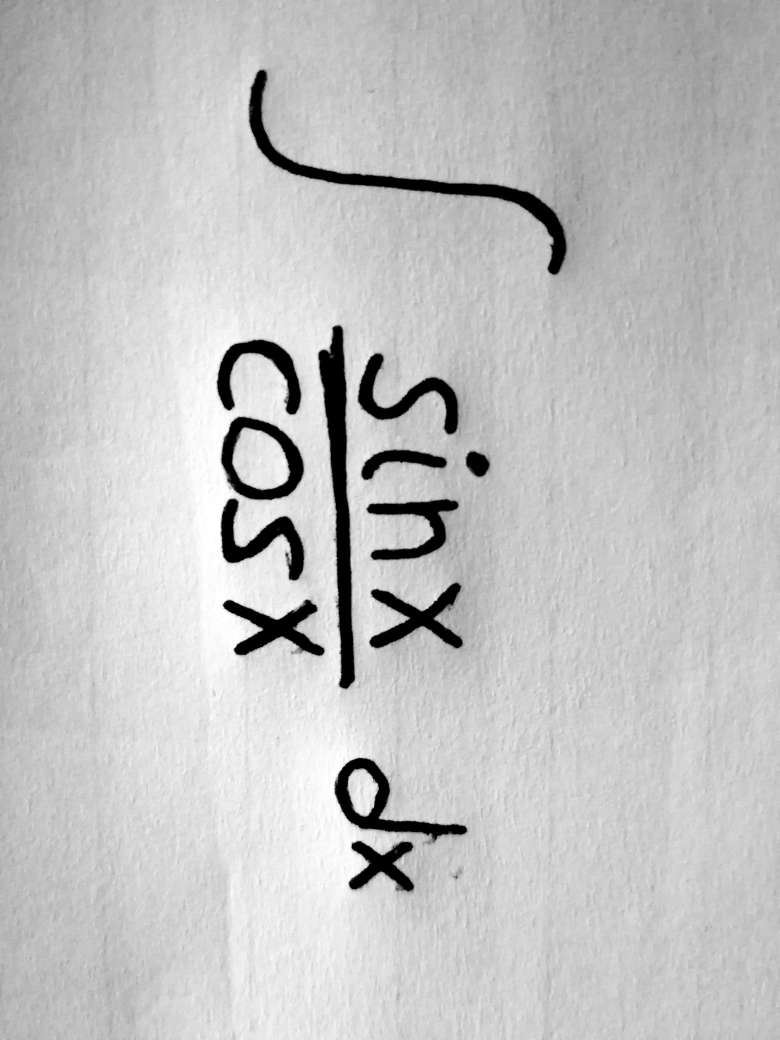 ∫ sinx/cosx dx